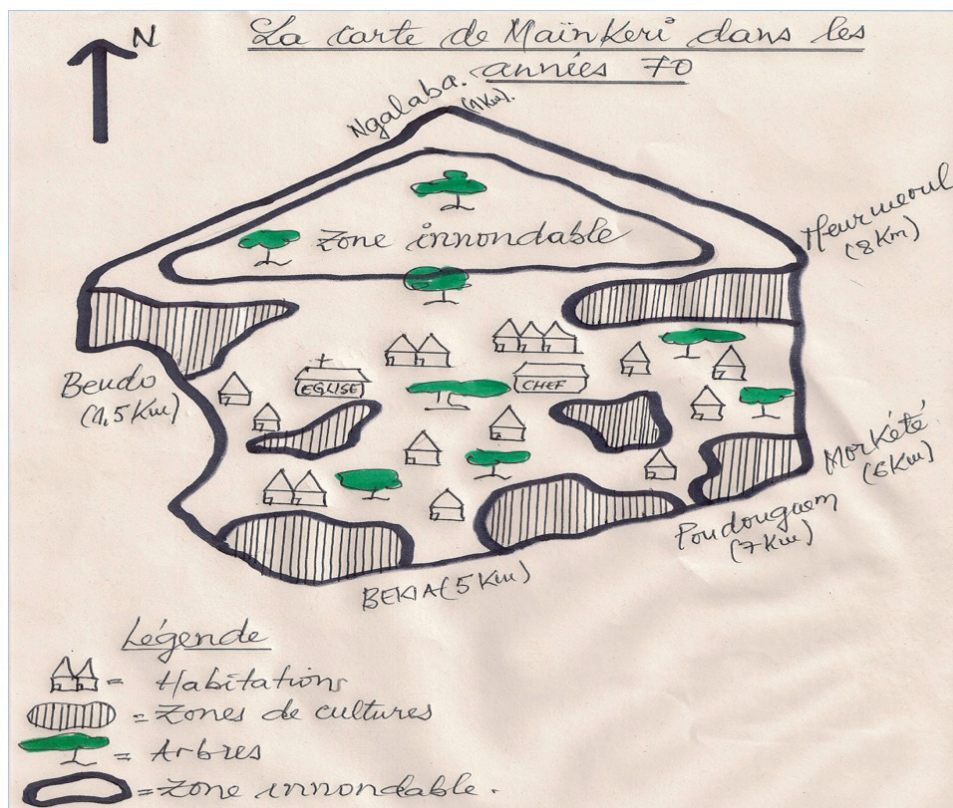 N
La carte de Maïnkeri dans les
années 70
Ngalaba.
(1Km).
Zone innondable
Heurmeoul
(8Km)
Beudo
(1,5Km)
EGLISE
CHEF
Morkété
(6Km)
Poudouguem
(7Km)
BEKIA (5Km)
Légende
= Habitations
= Zones de cultures
= Arbres
= Zone innondable.